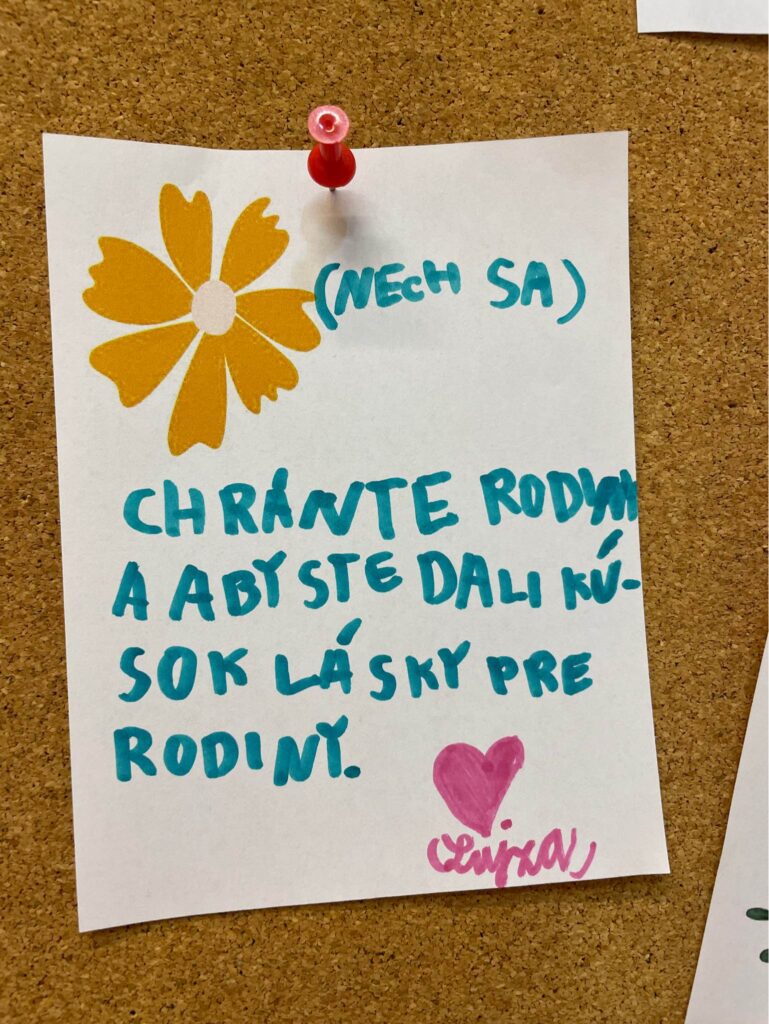 (NECH SA)
CHRÁŇTE RODINY
A ABY STE DALI KÚ-
SOK LÁSKY PRE
RODINY.
Lujza